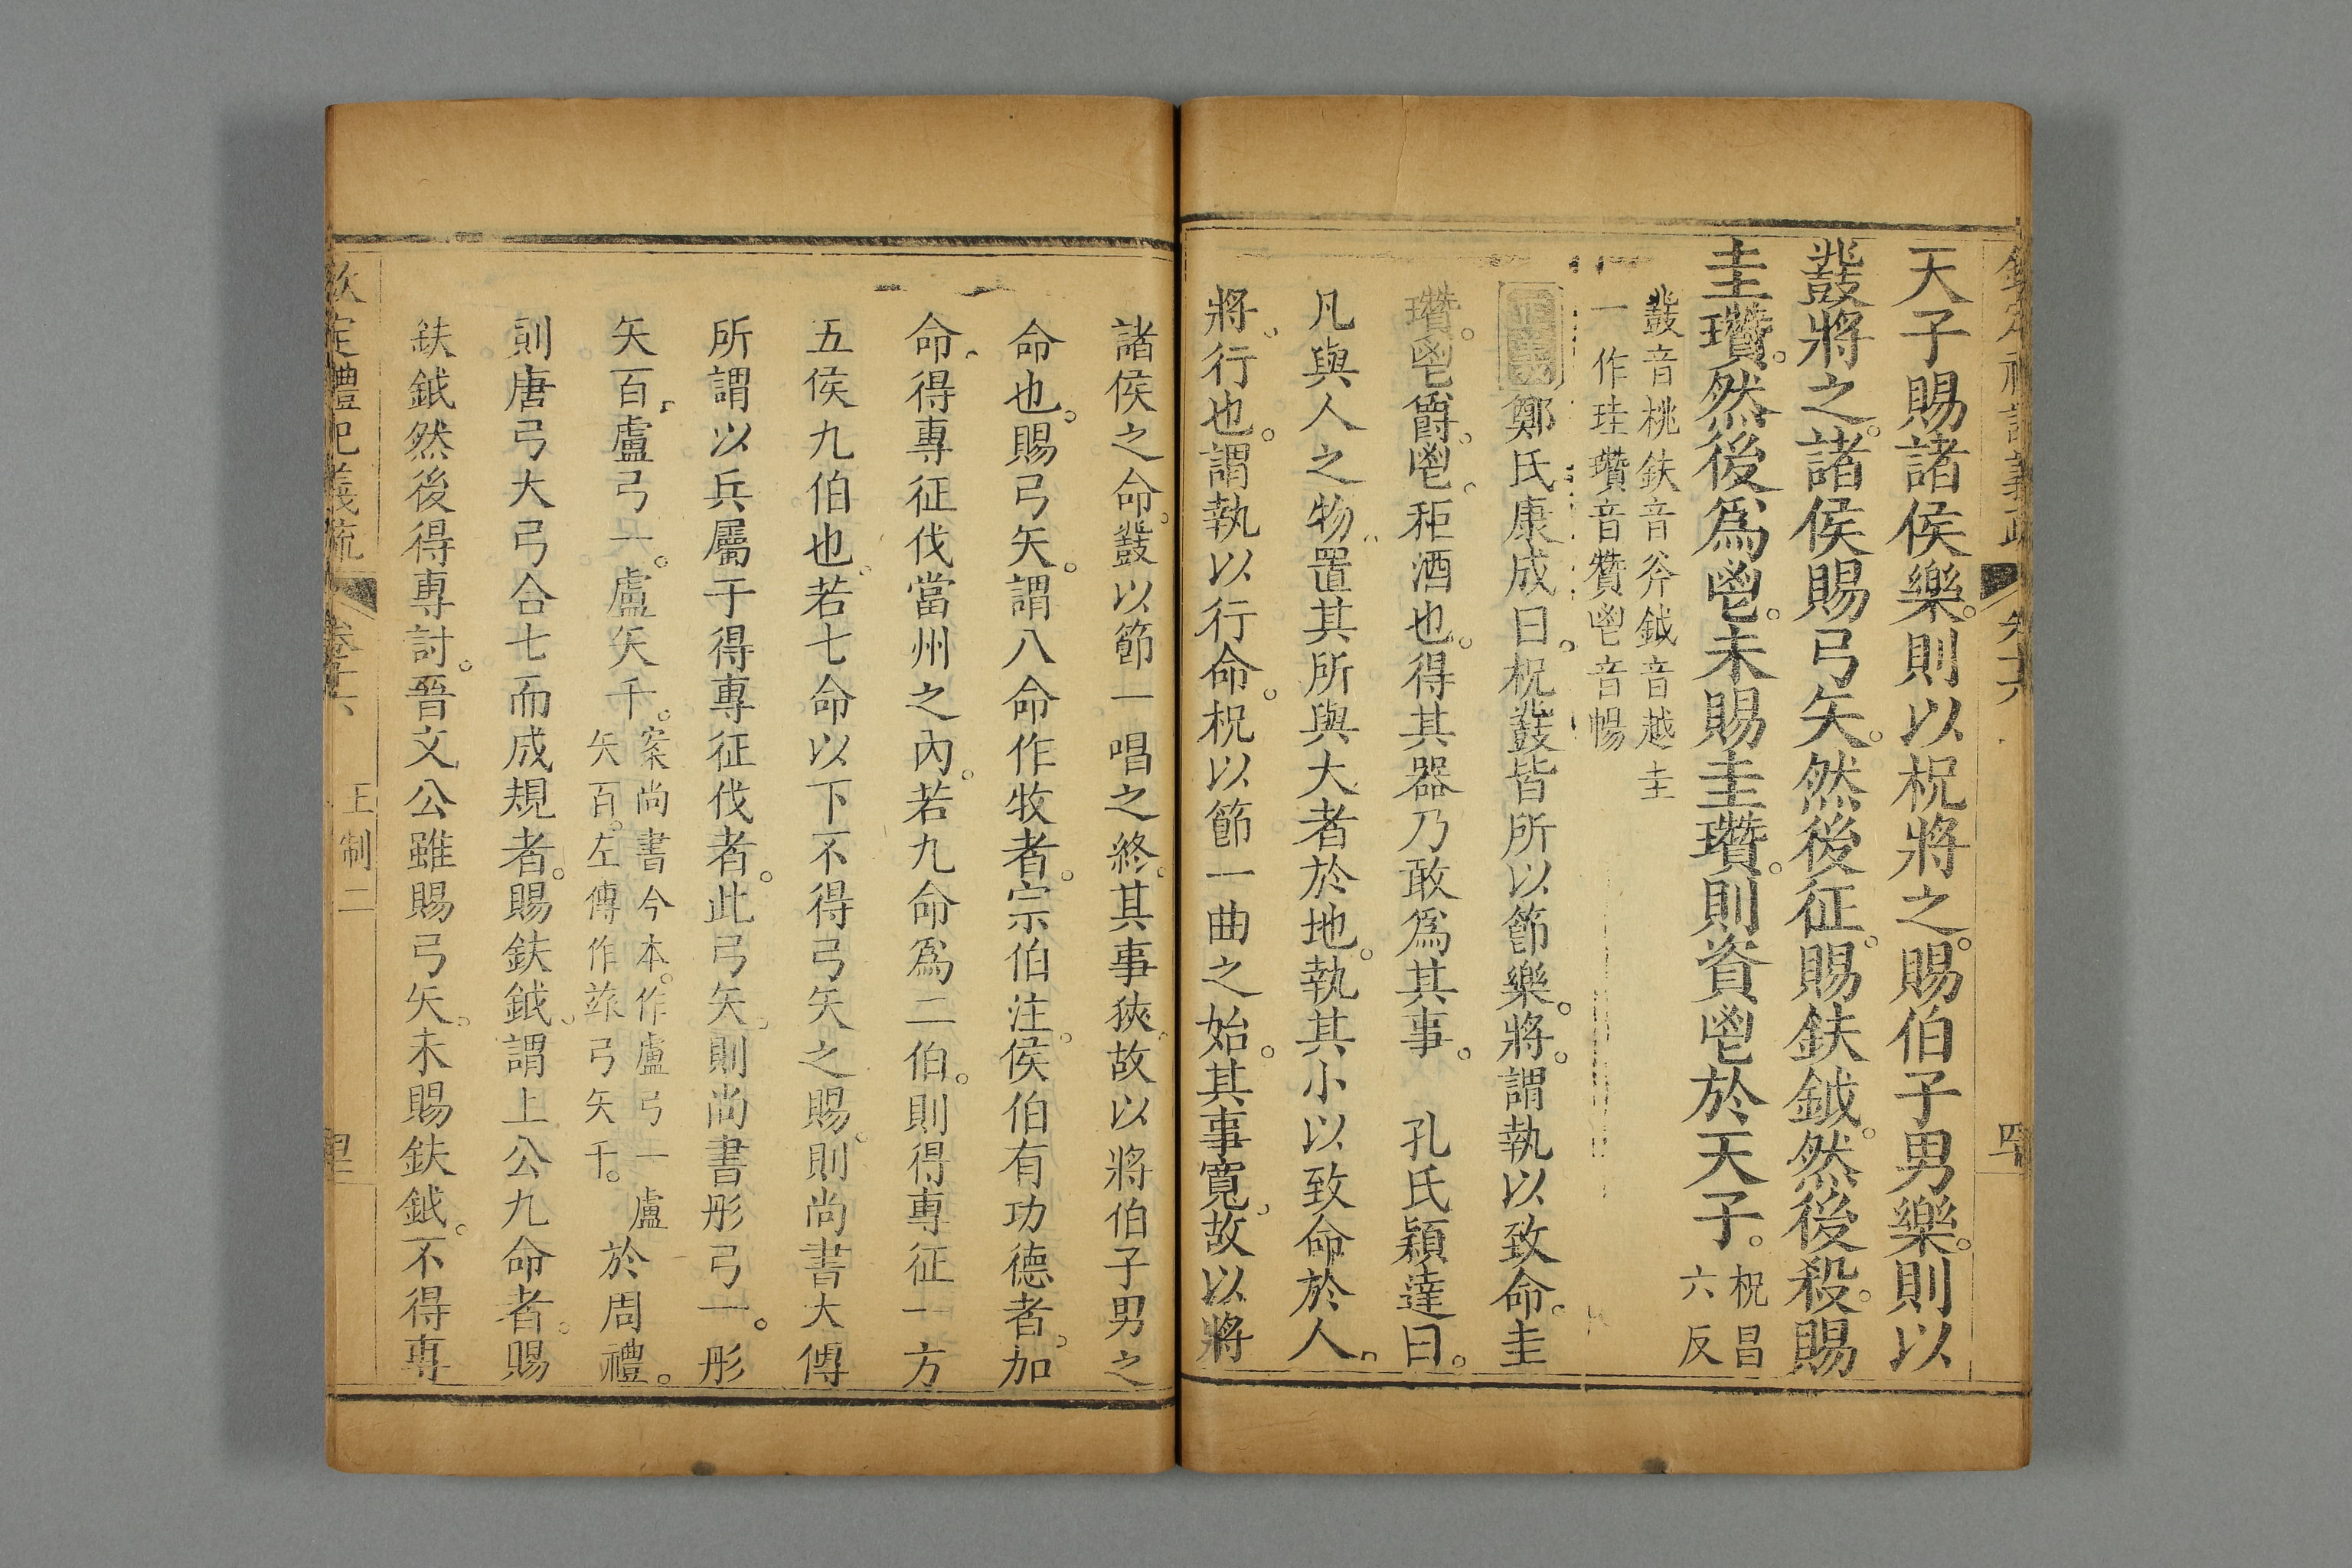 天子賜諸侯樂。則以柷將之。賜伯子男樂。則以
鼗將之。諸侯賜弓矢。然後征。賜鈇鉞。然後殺。賜
圭瓚。然後爲鬯。未賜圭瓚。則資鬯於天子。柷昌
六反
鼗音桃鈇音斧鉞音越圭
一作珪瓚音贊鬯音暢
正義鄭氏康成曰。柷鼗皆所以節樂。將。謂執以致命。圭
瓚。鬯爵。鬯。秬酒也。得其器乃敢爲其事。 孔氏穎達曰。
凡與人之物。置其所與大者於地。執其小以致命於人。
將。行也。謂執以行命。柷以節一曲之始。其事寬。故以將
諸侯之命。鼗以節一唱之終。其事狹。故以將伯子男之
命也。賜弓矢。謂八命作牧者。宗伯注。侯伯有功德者。加
命。得專征伐當州之內。若九命爲二伯。則得專征一方
五侯九伯也。若七命以下不得弓矢之賜。則尚書大傳
所謂以兵屬于得專征伐者。此弓矢。則尚書彤弓一。彤
矢百。盧弓一。盧矢千。案尚書今本。作盧弓一盧
矢百。左傳作玈弓矢千。於周禮。
則唐弓大弓合七而成規者。賜鈇鉞。謂上公九命者。賜
鈇鉞然後得專討。晉文公雖賜弓矢。未賜鈇鉞。不得專
欽定禮記義疏 卷十六 王制二